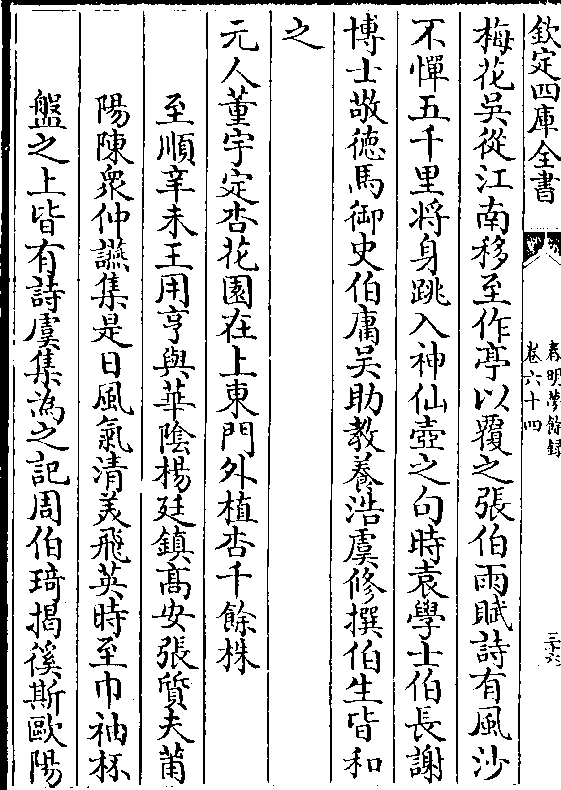 欽定四庫全書
春明夢餘錄
卷六十四
三十六
梅花吳從江南移至作亭以覆之張伯雨賦詩有風沙
不憚五千里将身跳入神仙壺之句時袁學士伯長謝
博士敬徳馬御史伯庸吴助教養浩虞修撰伯生皆和
之
元人董宇定杏花園在上東門外植杏千餘株
至順辛未王用亨與華隂楊廷鎮髙安張質夫莆
陽陳衆仲讌集是日風氣清美飛英時至巾袖杯
盤之上皆有詩虞集為之記周伯琦揭徯斯歐陽